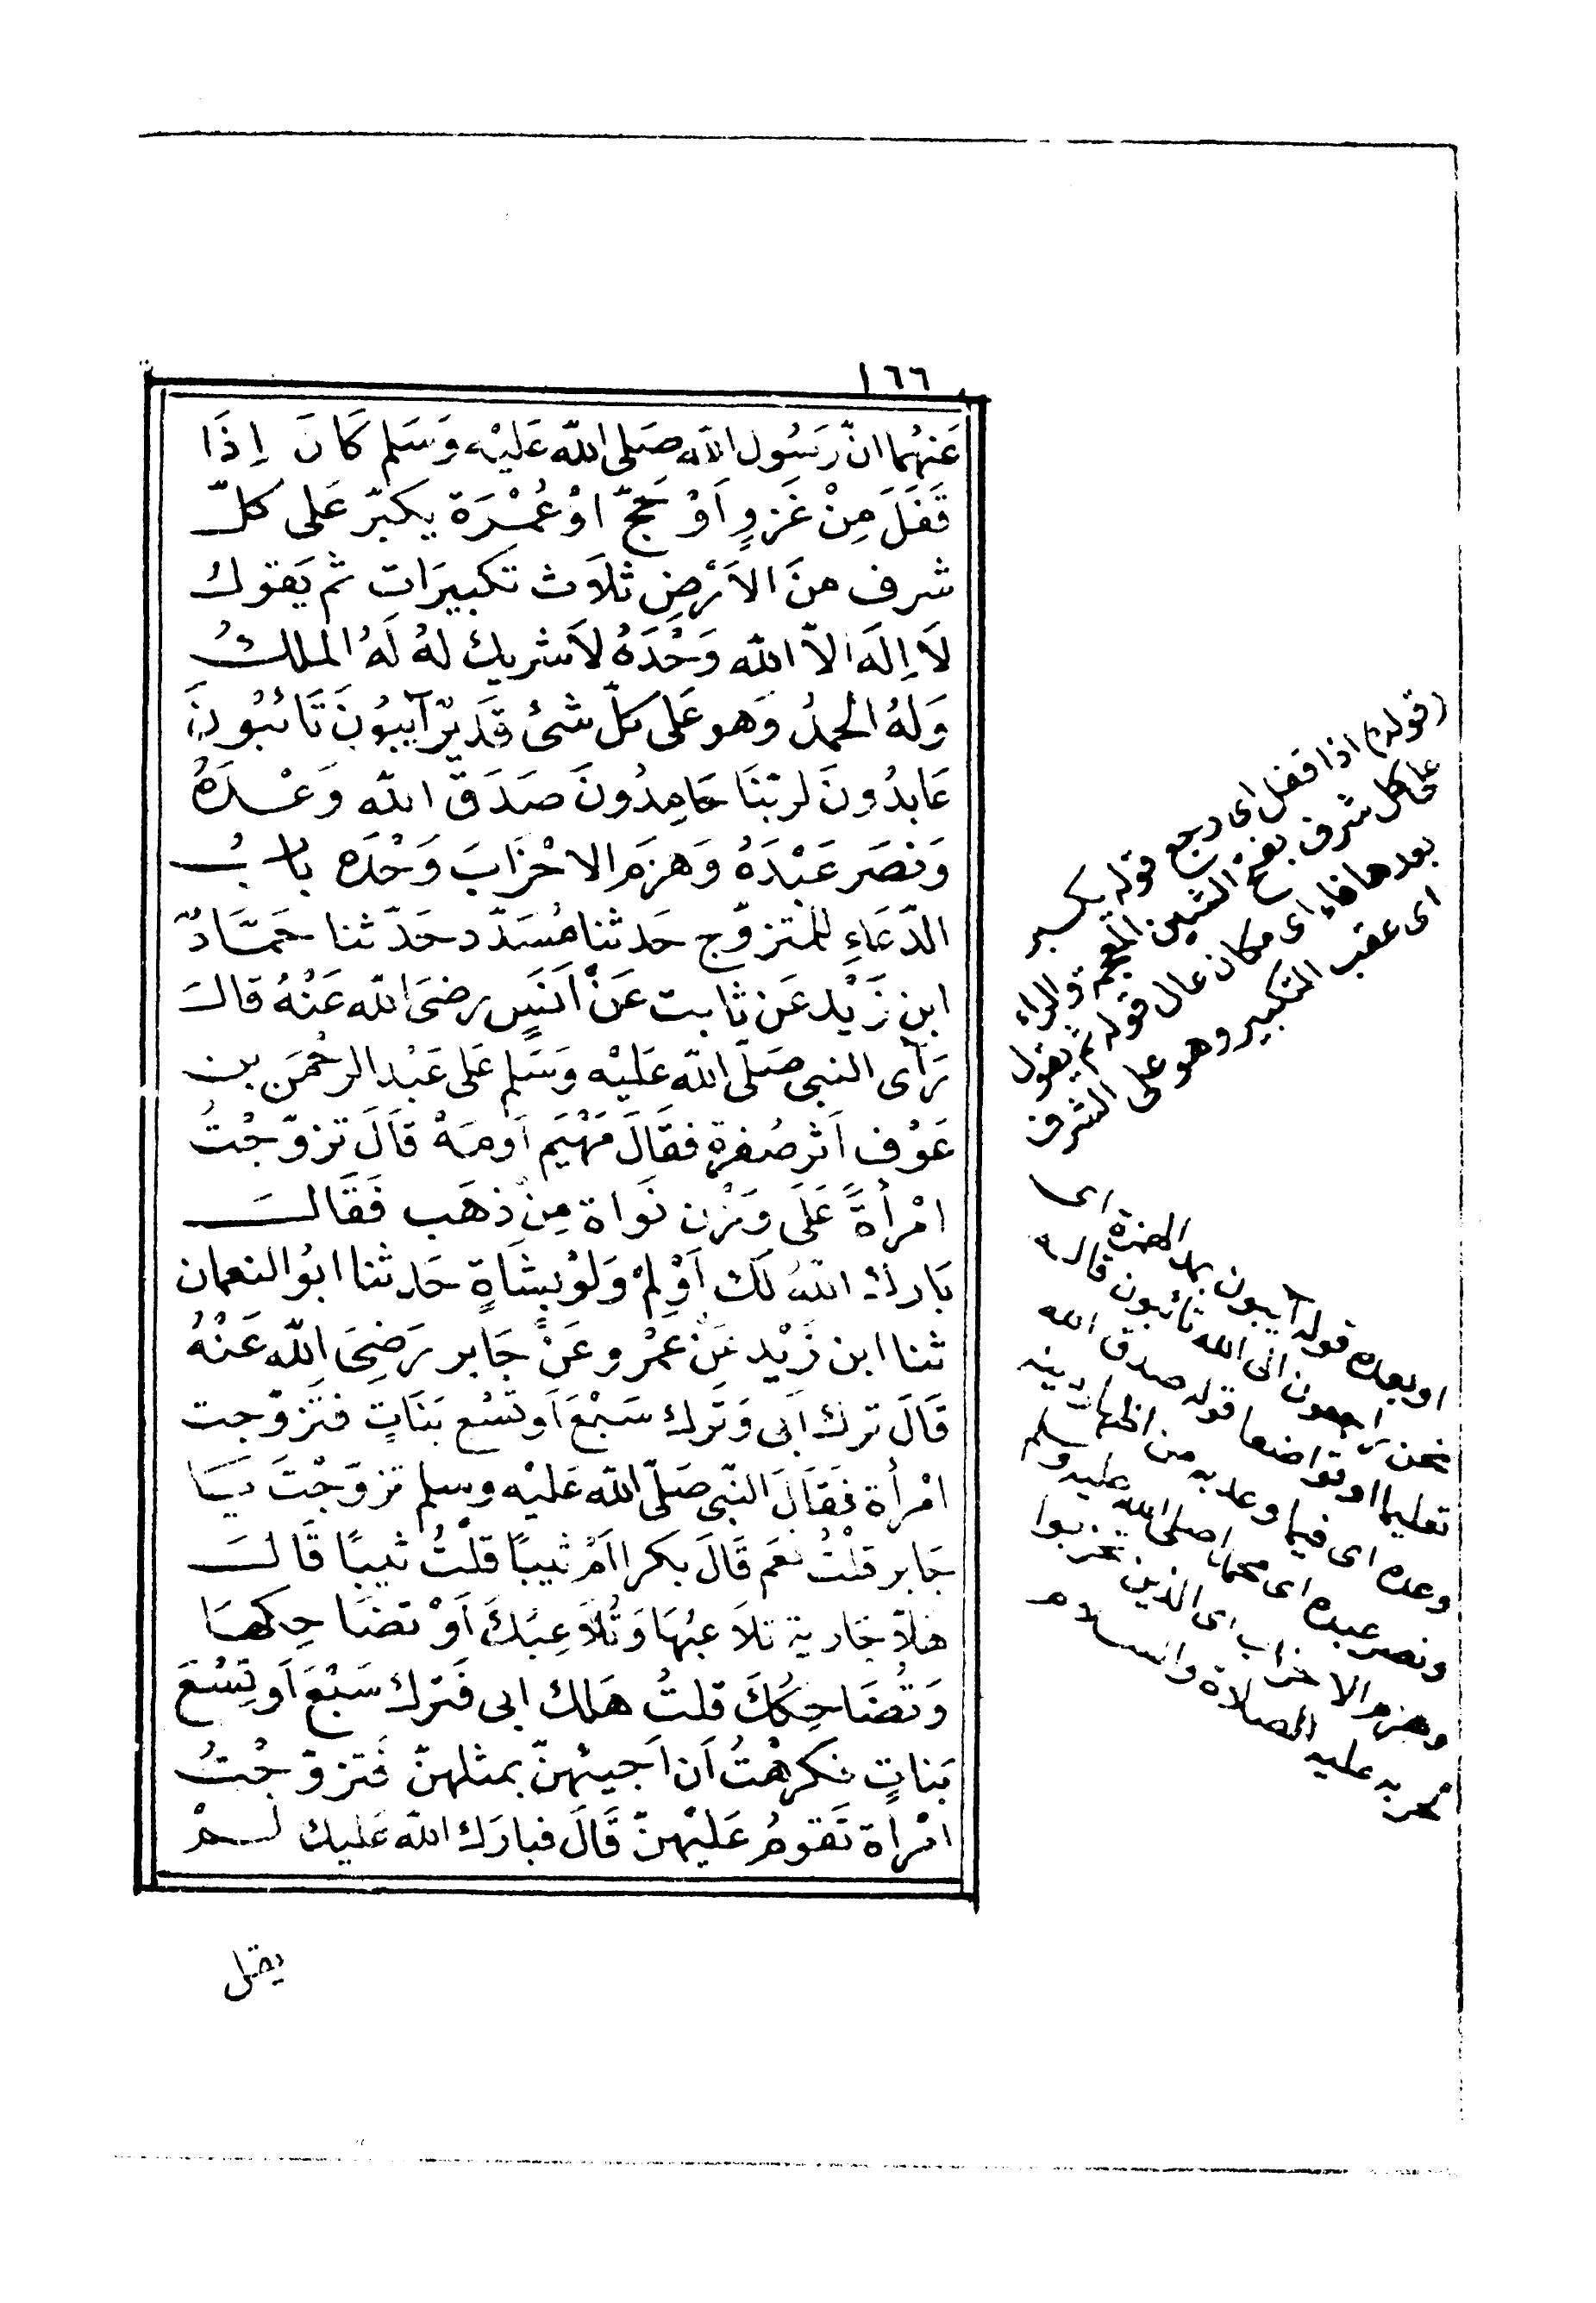 ١٦٦
عَنهُما انّ رَسُول الله صَلى الله عَليْه وَسَلم كَانَ اِذَا
قَفَلَ مِنْ غَزوٍ اَوْ حَجّ اوْ عُمْرَة يكبّر عَلى كلّ
شرف منَ الاَرْضِ ثلاَث تكبيرَاتٍ ثم يَقول
لاَ اِلَهَ الاّ الله وَحْدَهُ لاَ شريك لهُ لَهُ الملكُ
وَلهُ الحمدُ وَهو عَلى كلّ شئ قَديرٌ آيبُونَ تَائبُونَ
عَابدُونَ لربّنَا حَامِدُونَ صَدَقَ الله وَعْدَهُ
وَنصَر عَبْدَهُ وَهزمَ الاحْزَابَ وَحْدَه بابُ
الدّعَاءِ للمتزوّج حَدثنا مُسَدّد حَدّثنا حَمَّادٌ
ابن زَيْد عَن ثابت عَنْ اَنَسٍ رضىَ الله عَنْهُ قالَ
رَآى النبى صَلّى الله عَليْه وَسَلم عَلى عَبْد الرحْمَن بن
عَوْف اَثر صُفرةٍ فقَالَ مَهْيَم اَومَهْ قَالَ تزوّجْتُ
امْرأةً عَلَى وَزْن نَواة مِنْ ذهَب فَقَالَ
بَاركَ اللهُ لَك اَوْلِمْ وَلوْ بشَاةٍ حَدثنا ابُو النعمان
ثنا ابن زَيْد عَنْ عمْرو عَنْ جَابر رَضِىَ الله عَنْهُ
قَالَ ترك اَبى وَتَرك سَبْعَ اَو تسْع بَنَاتٍ فتَزوّجت
امْرأة فقَالَ النّبى صَلّى الله عَليْه وسلم تزوّجْتَ يَا
جَابر قلْتُ نعَم قَالَ بكرا اَمْ ثيبًا قلْتُ ثيبًا قَالَ
هَلاّ جَارية تلاَعبُهَا وَتُلاَعِبُكَ اَوْ تضَاحِكهَا
وَتُضَاحِكُكَ قلتُ هَلك ابى فَترك سَبْعَ اَو تِسْعَ
بَناتٍ فكرهْتُ اَن اَجيئهُنّ بمثلهنّ فَتزوّجْتُ
امْرأة تَقومُ عَليْهنّ قَالَ فبارَك الله عَليك لمْ
يقل
(قوله) اذا قفل اى رجع قوله يكبر
على كل شرف بفتح الشين المعجمة والراء
بعدها فاء اى مكان عال قوله ثم يقول
اى عقب التكبير وهو على الشرف
او بعده قوله آيبون بمد الهمزة اى
نحن راجعون الى الله تائبون قاله
تعليما او تواضعا قوله صدق الله
وعده اى فيما وعد به من اظهار دينه
ونصر عبده اى محمدا صلى الله عليه وسلم
وهزم الاحزاب اى الذين تحزبوا
لحربه عليه الصلاة والسلام